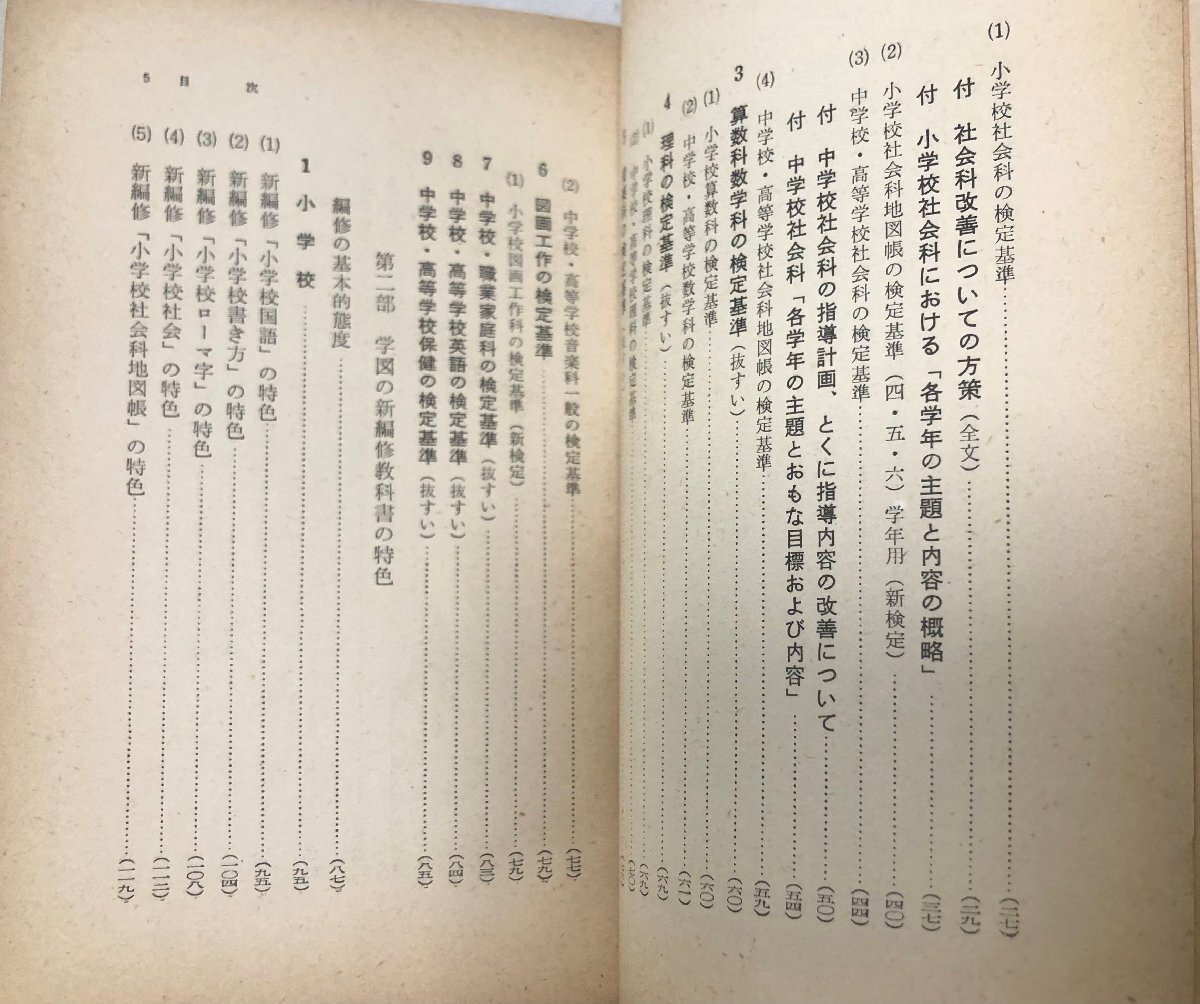 (1) 小学校社会科の検定基準……(二七)
付 社会科改善についての方策(全文)……(二九)
付 小学校社会科における「各学年の主題と内容の概略」……(三七)
(2) 小学校社会科地図帳の検定基準(四・五・六)学年用(新検定)……(四〇)
(3) 中学校・高等学校社会科の検定基準……(四四)
付 中学校社会科の指導計画、とくに指導内容の改善について……(五〇)
付 中学校社会科「各学年の主題とおもな目標および内容」……(五四)
(4) 中学校・高等学校社会科地図帳の検定基準……(五九)
3 算数科数学科の検定基準(抜すい)……(六〇)
(1) 小学校算数科の検定基準……(六〇)
(2) 中学校・高等学校数学科の検定基準……(六一)
4 理科の検定基準(抜すい)……(六九)
(1) 小学校理科の検定基準……(六九)
(2) 中学校・高等学校理科の検定基準……(七〇)
(2) 中学校・高等学校音楽科一般の検定基準……(七七)
6 図画工作の検定基準……(七九)
(1) 小学校図画工作科の検定基準(新検定)……(七九)
7 中学校・職業家庭科の検定基準(抜すい)……(八三)
8 中学校・高等学校英語の検定基準(抜すい)……(八四)
9 中学校・高等学校保健の検定基準(抜すい)……(八五)
第二部 学図の新編修教科書の特色
編修の基本的態度……(八七)
1 小学校……(九五)
(1) 新編修「小学校国語」の特色……(九五)
(2) 新編修「小学校書き方」の特色……(一〇四)
(3) 新編修「小学校ローマ字」の特色……(一〇八)
(4) 新編修「小学校社会」の特色……(一一二)
(5) 新編修「小学校社会科地図帳」の特色……(一一九)
5 目次